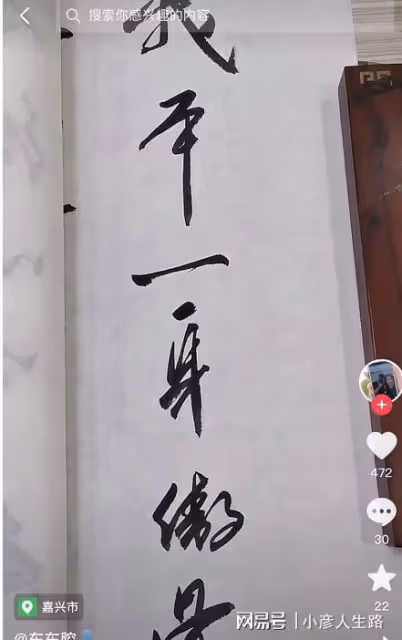 搜索你感兴趣的内容
我
平
一
身
傲
472
30
22
嘉兴市
网易号 | 小彦人生路